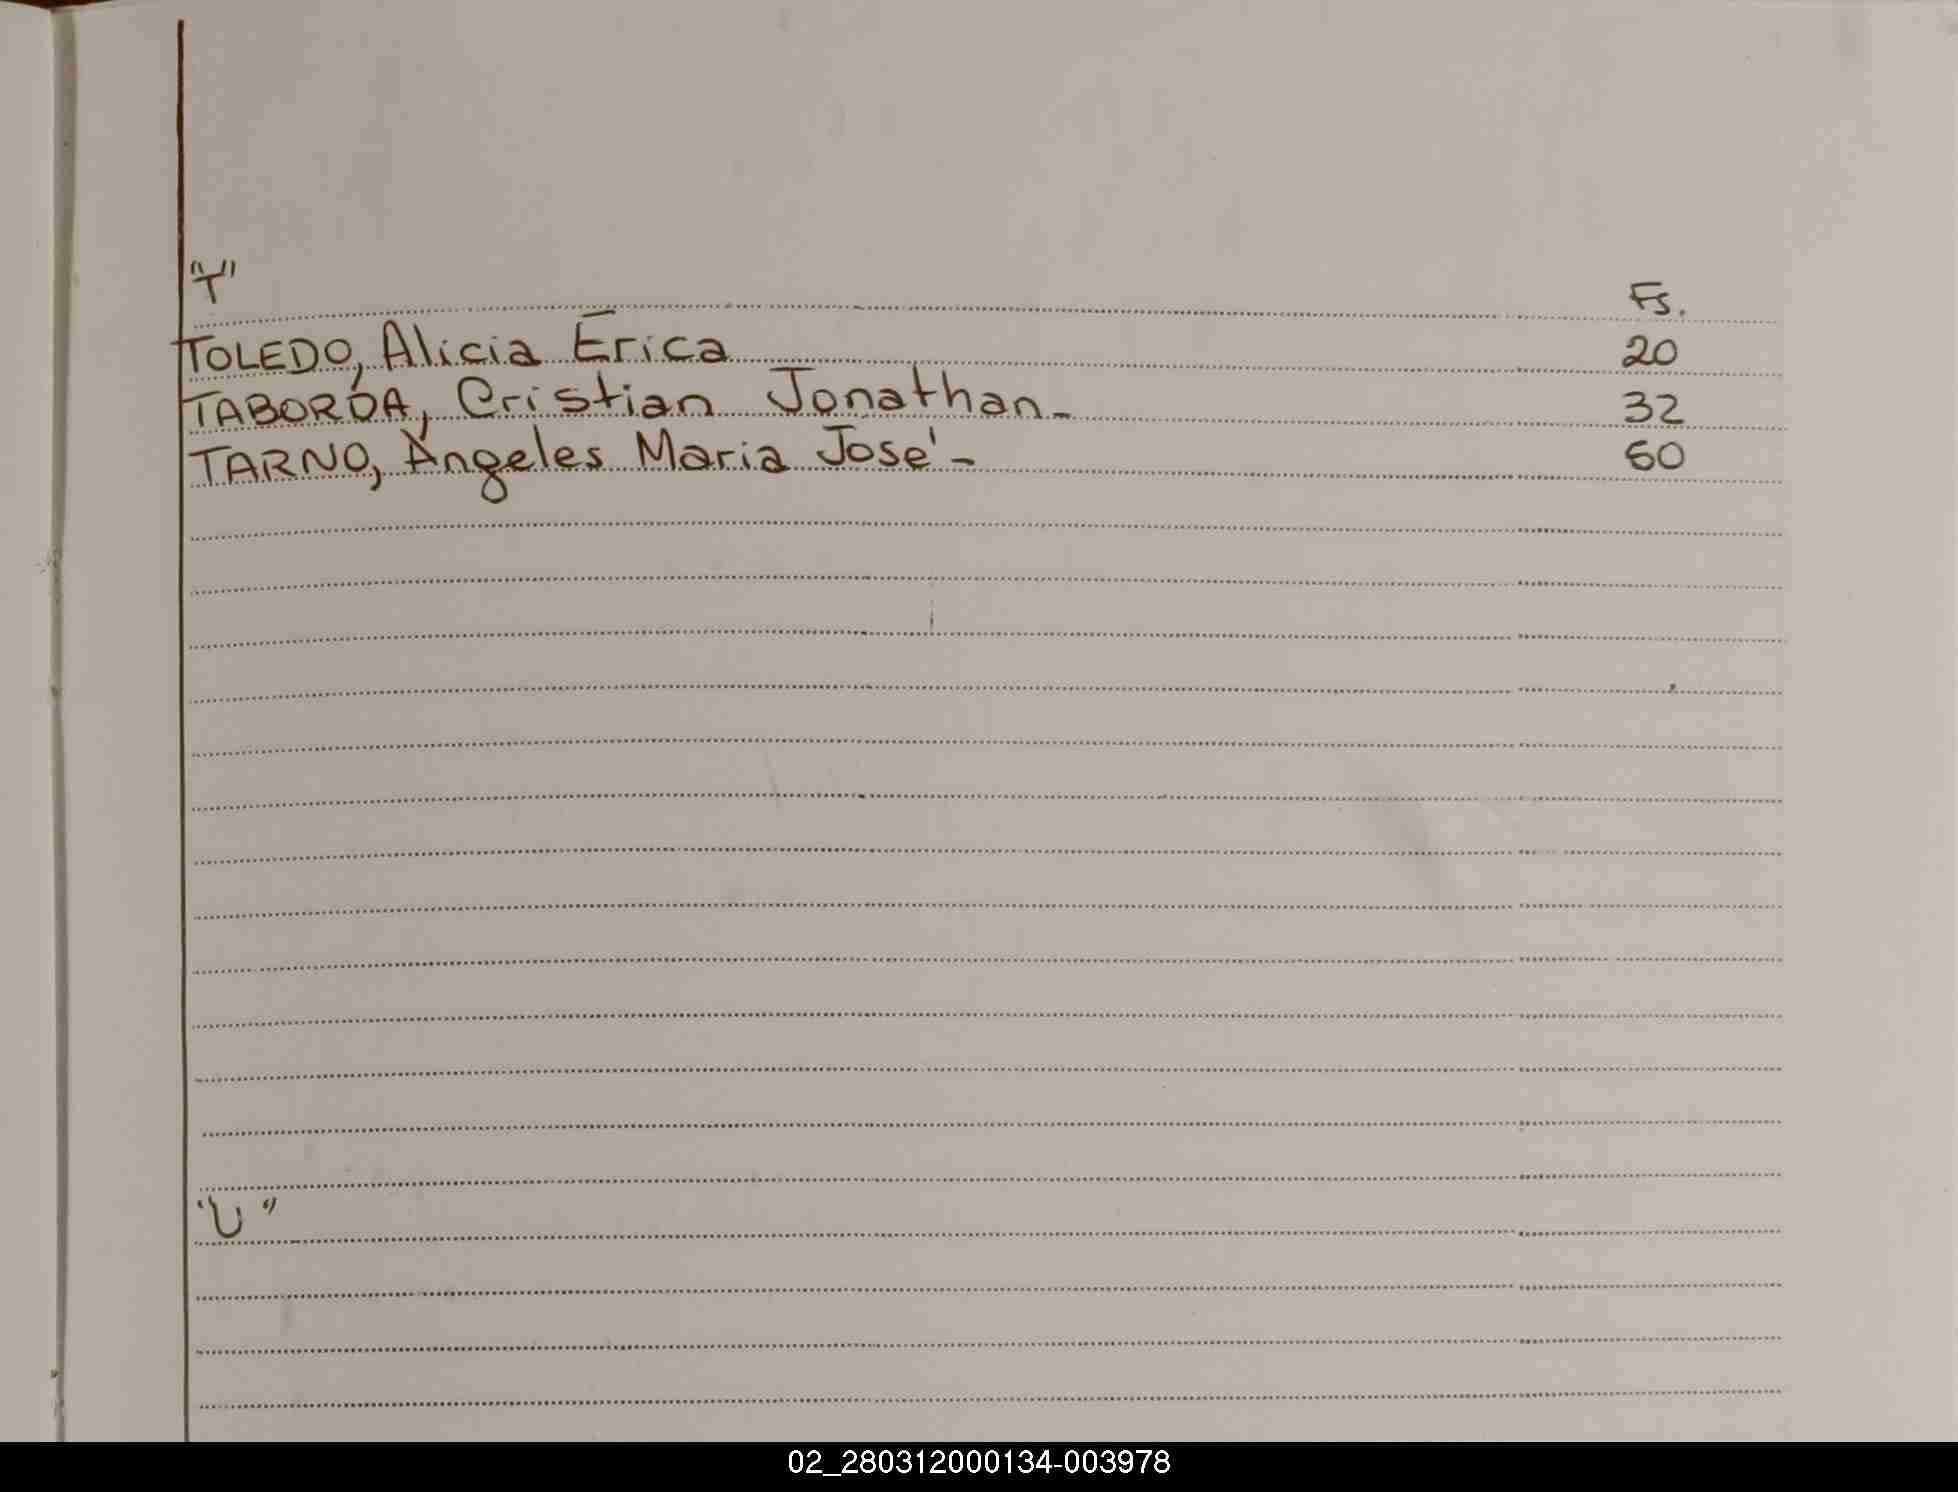 "T"
Fs.
TOLEDO, Alicia Erica 20
TABORDA, Cristian Jonathan- 32
TARNO, Angeles Maria José- 60
"U"
02_280312000134-003978